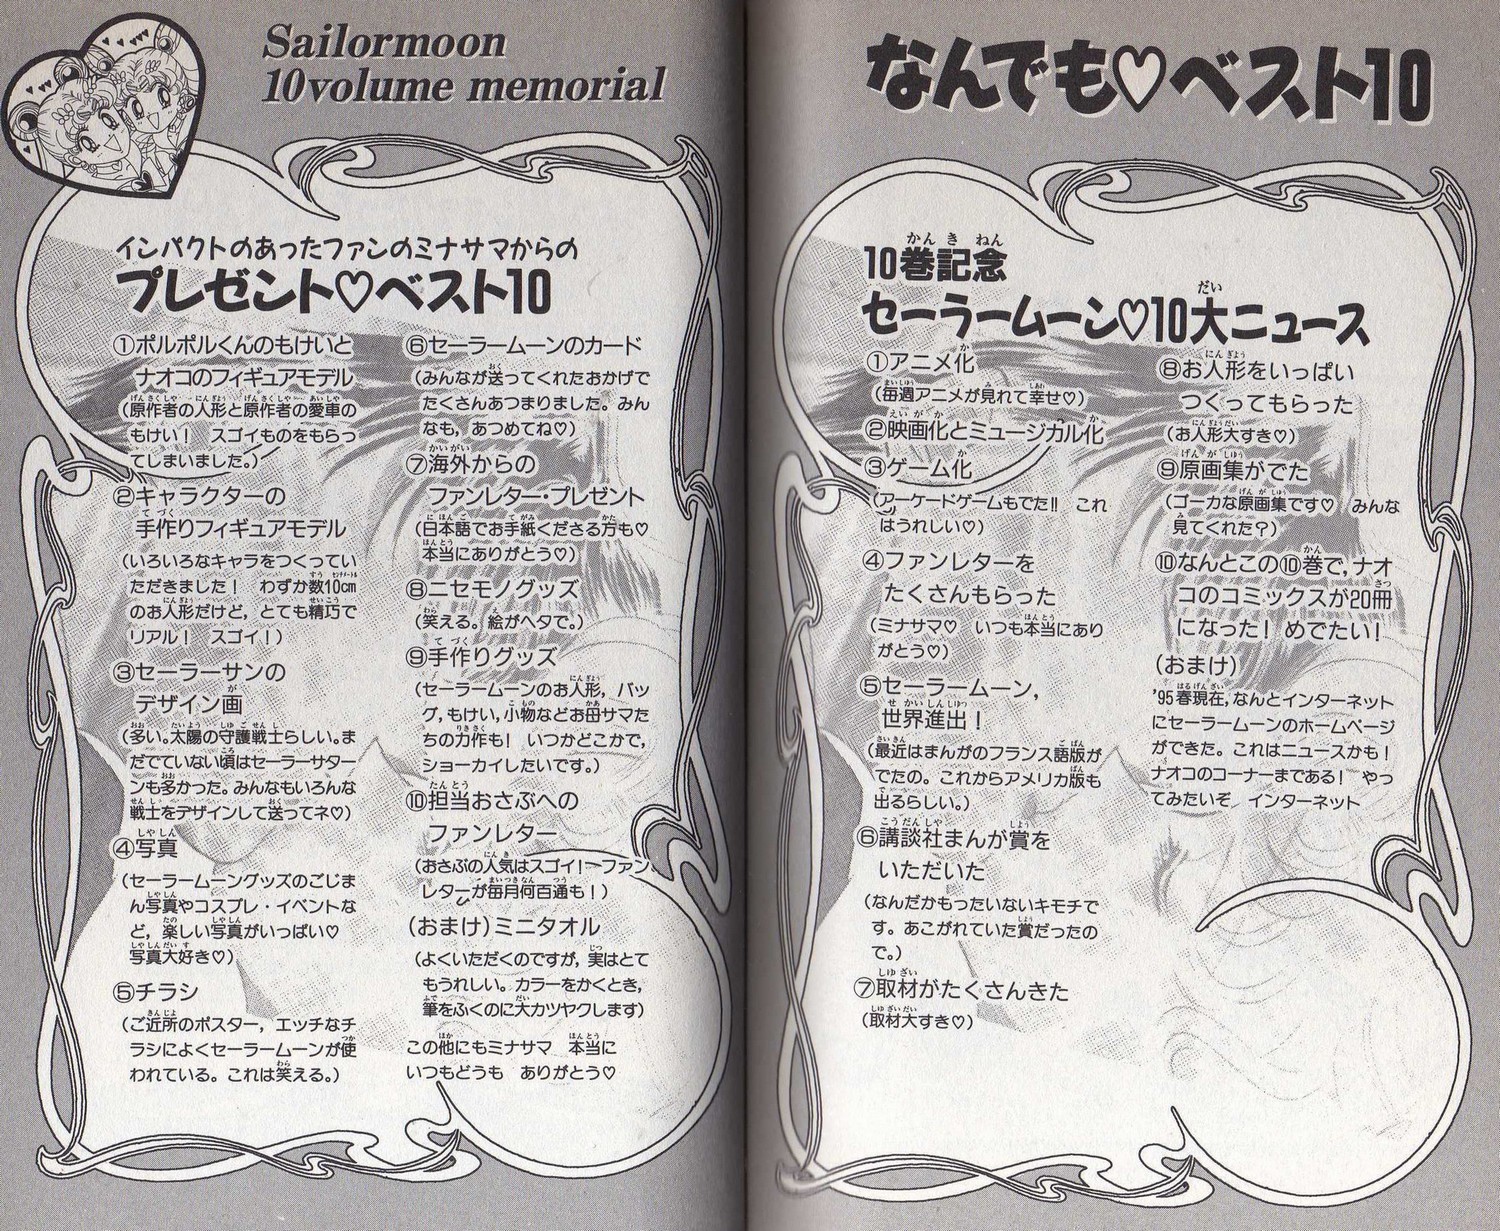 Sailormoon
10volume memorial
なんでも♡ベスト10
インパクトのあったファンのミナサマからの
プレゼント♡ベスト10
①ポルポルくんのもけいと
ナオコのフィギュアモデル
(原作者の人形と原作者の愛車の
もけい！　スゴイものをもらっ
てしまいました。)
②キャラクターの
手作りフィギュアモデル
(いろいろなキャラをつくってい
ただきました！　わずか数10cm
のお人形だけど，とても精巧で
リアル！　スゴイ！)
③セーラーサンの
デザイン画
(多い。太陽の守護戦士らしい。ま
だでていない頃はセーラーサター
ンも多かった。みんなもいろんな
戦士をデザインして送ってネ♡)
④写真
(セーラームーングッズのごじま
ん写真やコスプレ・イベントな
ど，楽しい写真がいっぱい♡
写真大好き♡)
⑤チラシ
(ご近所のポスター，エッチなチ
ラシによくセーラームーンが使
われている。これは笑える。)
⑥セーラームーンのカード
(みんなが送ってくれたおかげで
たくさんあつまりました。みん
なも，あつめてね♡)
⑦海外からの
ファンレター・プレゼント
(日本語でお手紙くださる方も♡
本当にありがとう♡)
⑧ニセモノグッズ
(笑える。絵がヘタで。)
⑨手作りグッズ
(セーラームーンのお人形，バッ
グ，もけい，小物などお母サマた
ちの力作も！　いつかどこかで，
ショーカイしたいです。)
⑩担当おさぶへの
ファンレター
(おさぶの人気はスゴイ！　ファン
レターが毎月何百通も！)
(おまけ)ミニタオル
(よくいただくのですが，実はとて
もうれしい。カラーをかくとき，
筆をふくのに大カツヤクします)
この他にもミナサマ　本当に
いつもどうも　ありがとう♡
10巻記念
セーラームーン♡10大ニュース
①アニメ化
(毎週アニメが見れて幸せ♡)
②映画化とミュージカル化
③ゲーム化
(アーケードゲームもでた!!　これ
はうれしい♡)
④ファンレターを
たくさんもらった
(ミナサマ♡　いつも本当にあり
がとう♡)
⑤セーラームーン，
世界進出！
(最近はまんがのフランス語版が
でたの。これからアメリカ版も
出るらしい。)
⑥講談社まんが賞を
いただいた
(なんだかもったいないキモチで
す。あこがれていた賞だったの
で。)
⑦取材がたくさんきた
(取材大すき♡)
⑧お人形をいっぱい
つくってもらった
(お人形大すき♡)
⑨原画集がでた
(ゴーカな原画集です♡　みんな
見てくれた？)
⑩なんとこの⑩巻で，ナオ
コのコミックスが20冊
になった！めでたい！
(おまけ)
'95春現在，なんとインターネット
にセーラームーンのホームページ
ができた。これはニュースかも！
ナオコのコーナーまである！　やっ
てみたいぞ　インターネット